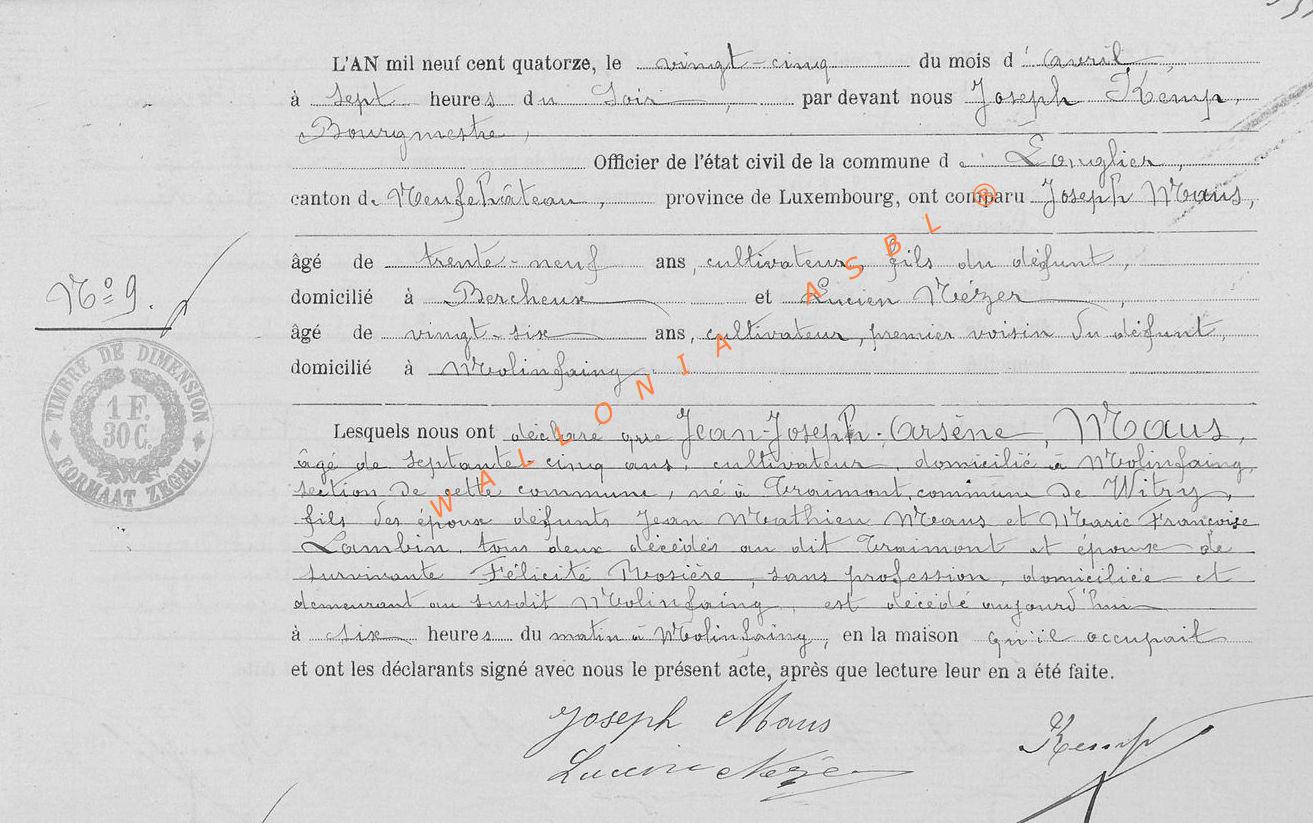 L'AN mil neuf cent quatorze, le vingt-cinq du mois d'avril,
à sept heures du soir, par devant nous Joseph Kemp,
Bourgmestre,
Officier de l'état civil de la commune de Longlier,
canton de Neufchâteau, province de Luxembourg, ont comparu Joseph Maus,
âgé de trente-neuf ans, cultivateur, fils du défunt,
domicilié à Bercheux et Lucien Nézer,
N° 9.
âgé de vingt-six ans, cultivateur, premier voisin du défunt,
domicilié à Molinfaing.
TIMBRE DE DIMENSION
1 F.
30 C.
FORMAAT ZEGEL
WALLONIA ASBL ®
Lesquels nous ont déclaré que Jean-Joseph-Arsène Maus,
âgé de septante-cinq ans, cultivateur, domicilié à Molinfaing,
section de cette commune, né à Traimont, commune de Witry,
fils des époux défunts Jean Mathieu Maus et Marie Françoise
Lambin, tous deux décédés au dit Traimont et époux de
survivante Félicité Rosière, sans profession, domiciliée et
demeurant au susdit Molinfaing, est décédé aujourd'hui
à six heures du matin à Molinfaing, en la maison qu'il occupait
et ont les déclarants signé avec nous le présent acte, après que lecture leur en a été faite.
Joseph Maus
Kemp
Lucien Nézer